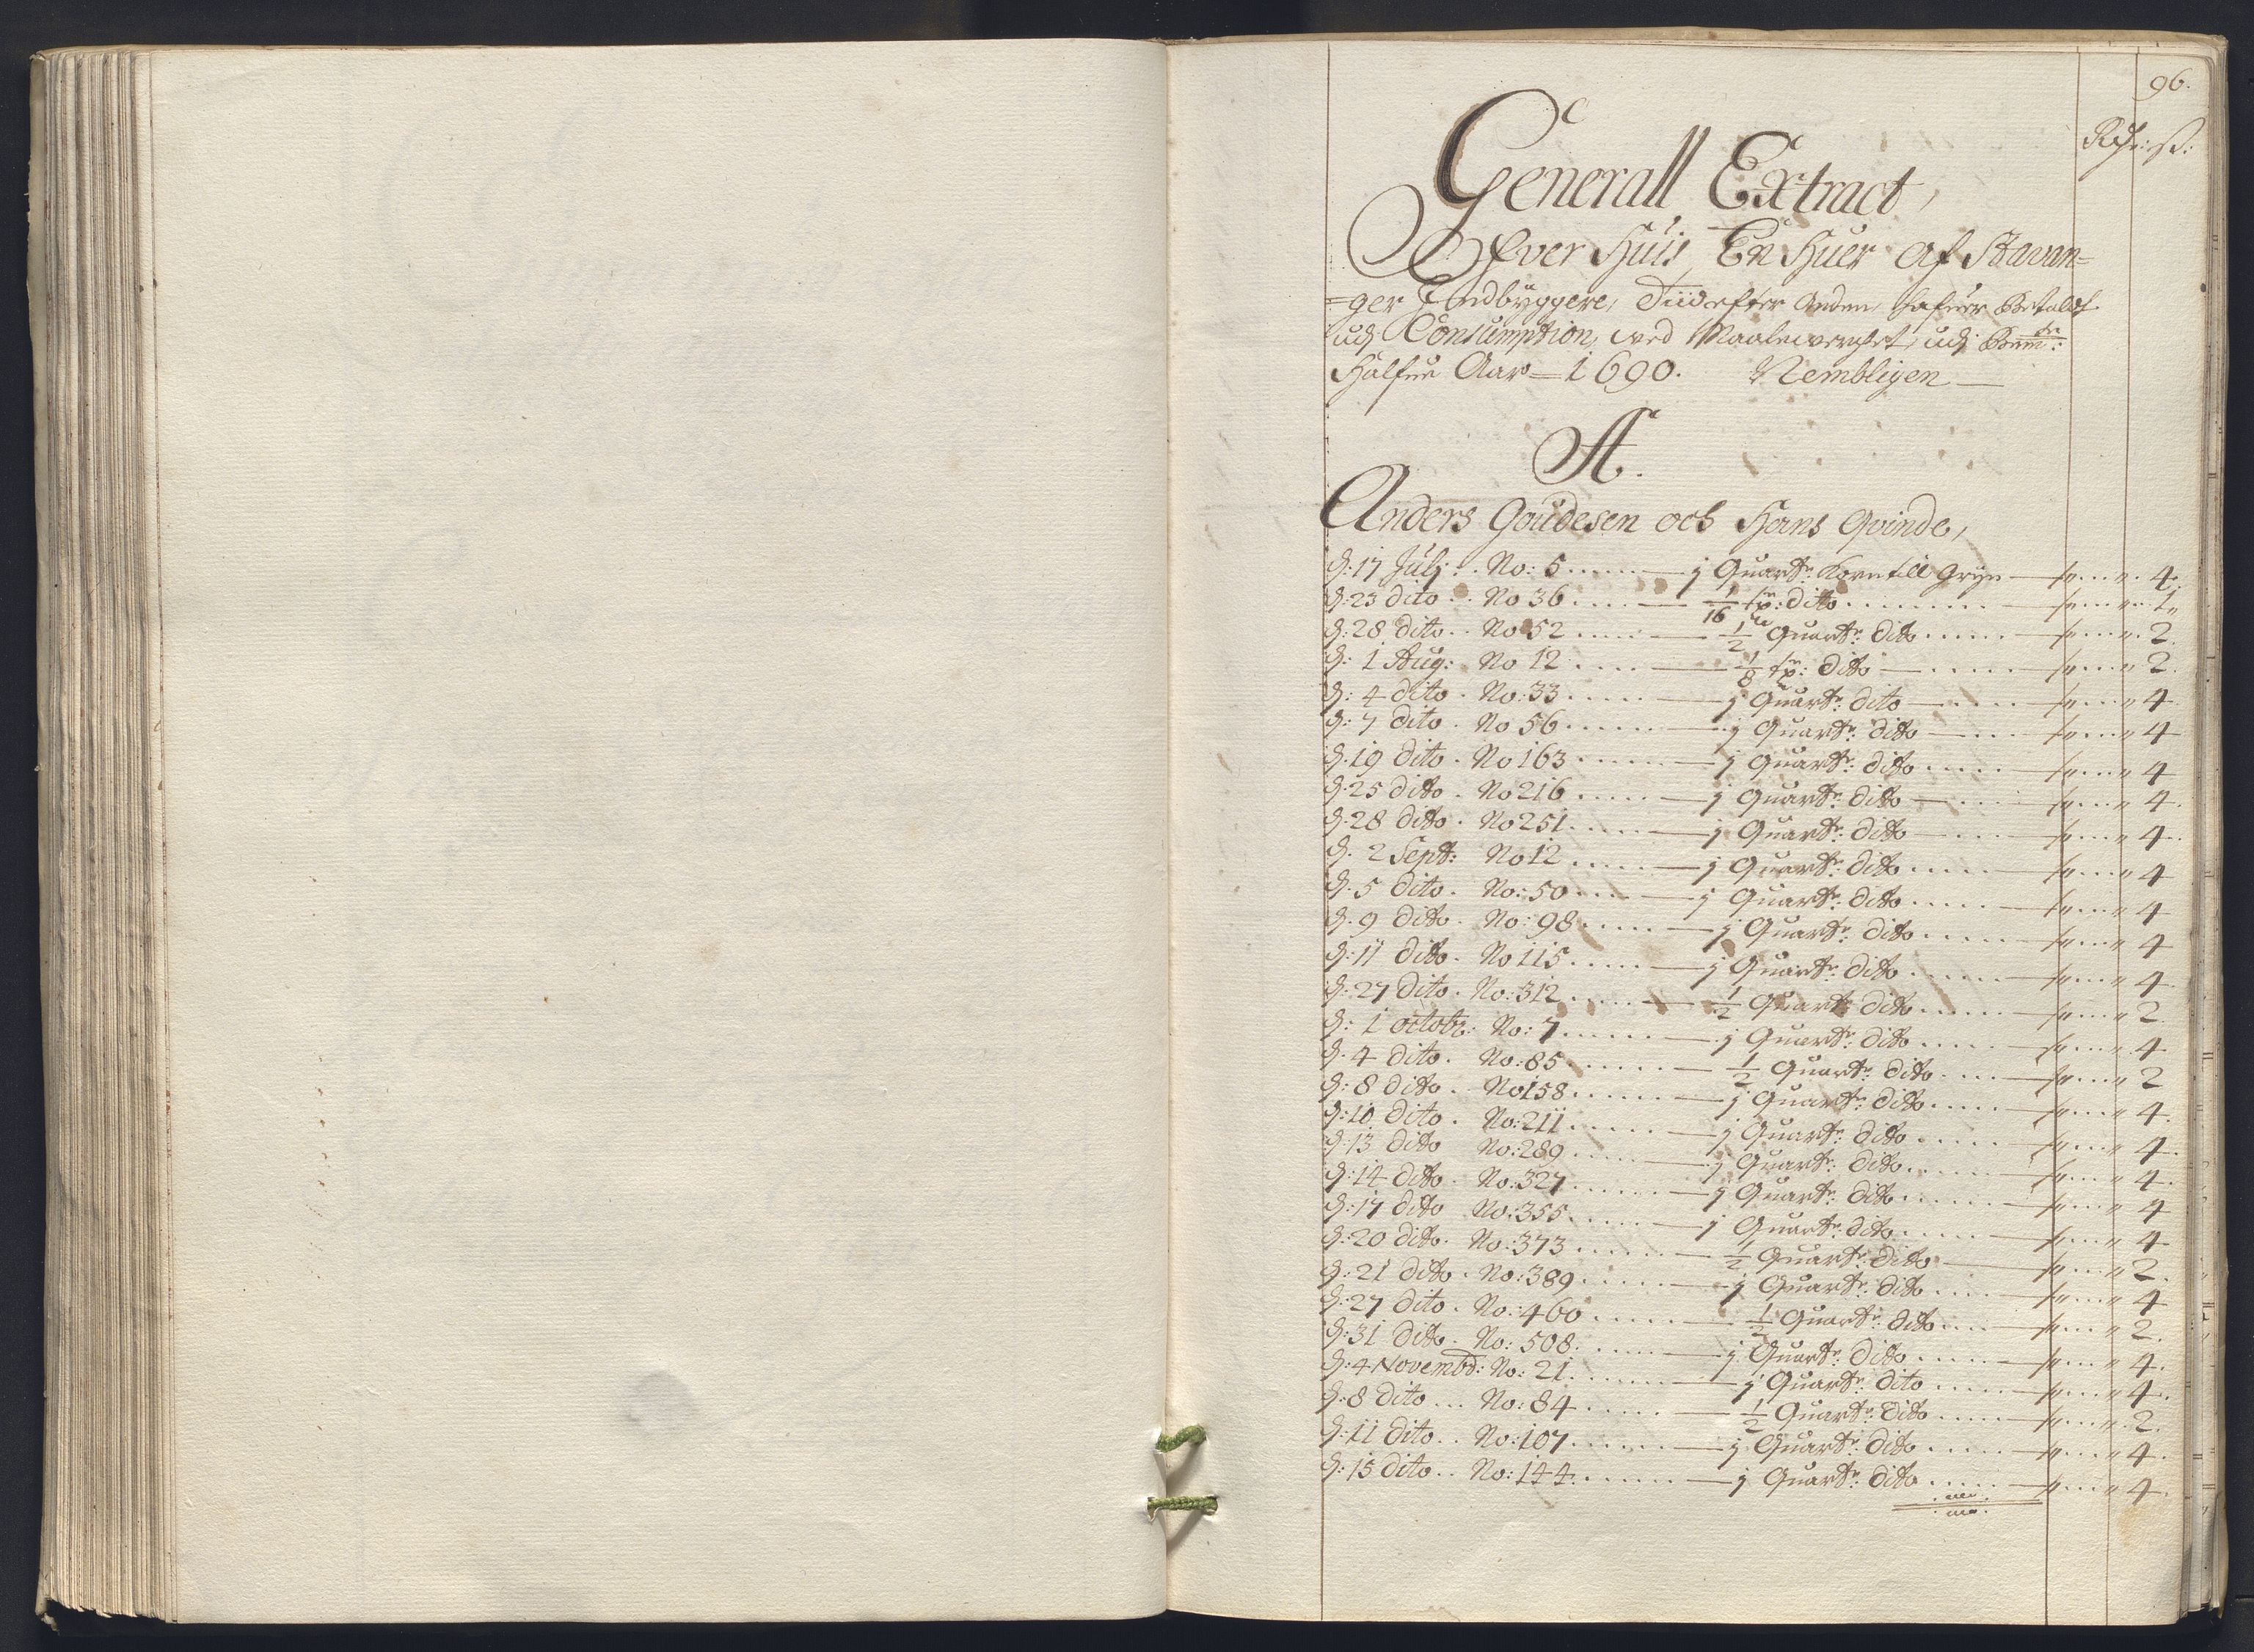 96.
Rdr: ß:
Generall Extract,
Ofver Huis En Huer af Stavan=
=ger Indbÿggere, Tiid efter anden, hafuer Betaldt
udj Consumption, ved Maaleverchet, udj Bem:te
Halfue Aar = 1690. Nembligen
A.
Anders Goudesen och Hans Qvinde,
d: 17 Julj: No: 5 — j Quartr: Korn till Grÿn — 4.
d: 23 dito No 36 — 1/16 tr: dito — 1
d: 28 dito No 52 — 1/2 Quartr: dito — 2
d: 1 Aug: No 12 — 1/8 tr: dito — 2.
d: 4 dito No: 33 — j Quartr: dito — 4
d: 7 dito No 56 — j Quartr: dito — 4
d. 19 dito No 163 — j Quartr: dito — 4
d. 25 dito No 216 — j Quartr: dito — 4.
d. 28 dito No 251 — j Quartr: dito — 4.
d. 2 Sept: No 12 — j Quartr: dito — 4
d. 5 dito No: 50 — j Quartr: dito — 4
d. 9 dito No: 98 — j Quartr: dito — 4
d: 11 dito No 115 — j Quartr: dito — 4
d: 27 dito No: 312 — 1/2 Quartr: dito — 2
d: 1 octobr: No: 7 — j Quartr: dito — 4
d. 4 dito No: 85 — 1/2 Quartr: dito — 2
d: 8 dito No 158 — j Quartr: dito — 4.
d: 10 dito No: 211 — j Quartr: dito — 4.
d: 13 dito No: 289 — j Quartr: dito — 4.
d: 14 dito No: 327 — j Quartr: dito — 4
d: 17 dito No: 355 — j Quartr: dito — 4
d: 20 dito No: 373 — 1/2 Quartr: dito — 2.
d: 21 dito No: 389 — j Quartr: dito — 4
d: 27 dito No: 460 — 1/2 Quartr: dito — 2.
d: 31 dito No: 508 — j Quartr: dito — 4.
d: 4 Novembr: No: 21 — j Quartr: dito — 4.
d: 8 dito No: 84 — 1/2 Quartr: dito — 2.
d: 11 dito No: 107 — j Quartr: dito — 4.
d: 15 dito No: 144 — j Quartr: dito — 4.